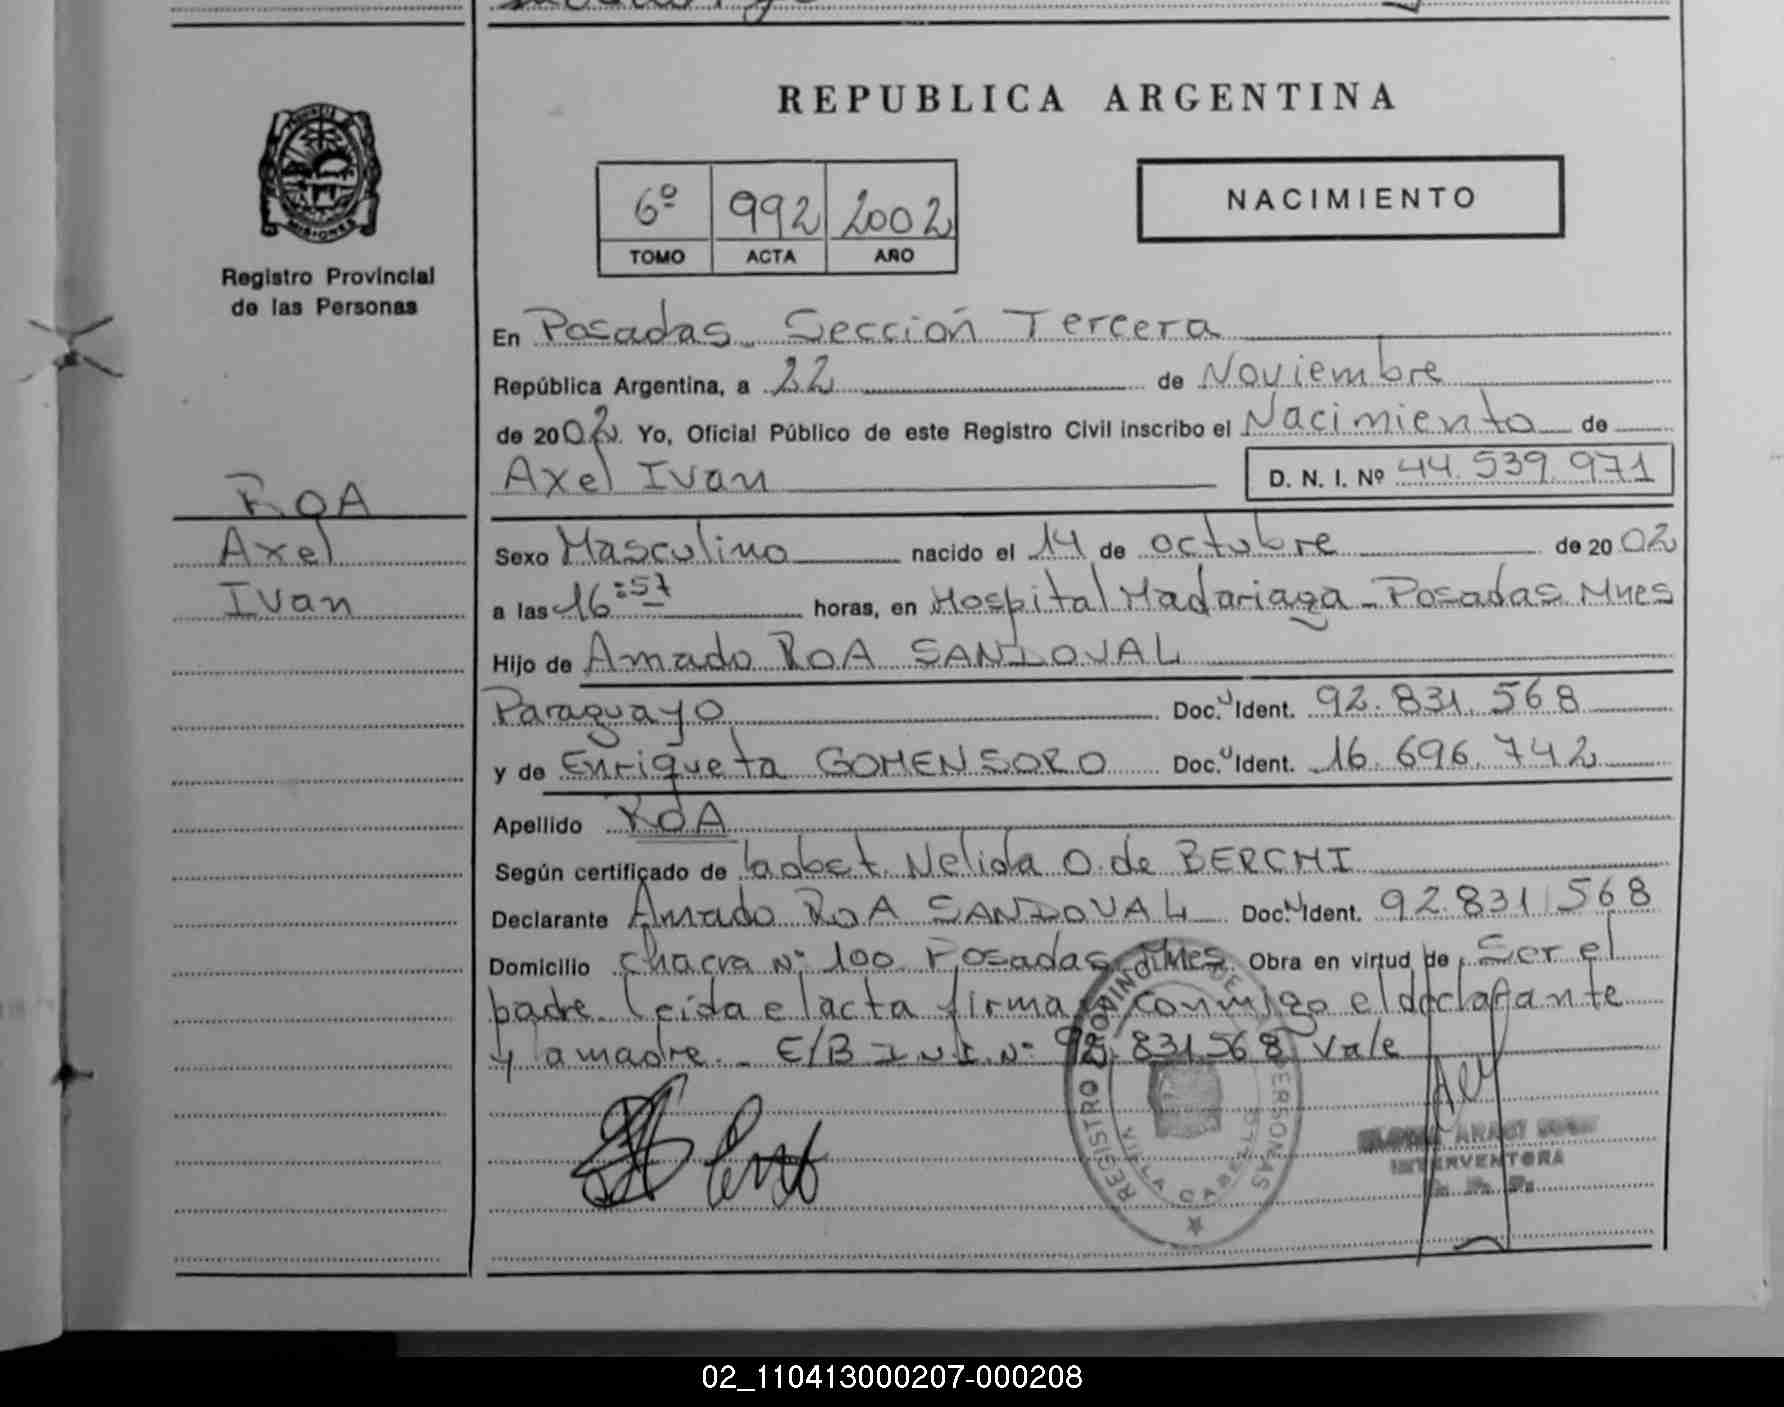 REPUBLICA ARGENTINA
MISIONES
Registro Provincial
de las Personas
6º 992 2002
TOMO ACTA AÑO
NACIMIENTO
En Posadas Sección Tercera
República Argentina, a 22 de Noviembre
de 2002. Yo, Oficial Público de este Registro Civil inscribo el Nacimiento de
Axel Ivan
D. N. I. Nº 44.539.971
ROA
Axel
Ivan
Sexo Masculino nacido el 14 de octubre de 2002
a las 16:57 horas, en Hospital Madariaga - Posadas Mnes
Hijo de Amado ROA SANDOVAL
Paraguayo Doc. Ident. 92.831.568
y de Enriqueta GOMENSORO Doc. Ident. 16.696.742
Apellido ROA
Según certificado de Nelida O. de BERCHI
Declarante Amado ROA SANDOVAL Doc. Ident. 92.831.568
Domicilio Chacra Nº 100 Posadas Mnes. Obra en virtud de Ser el
padre. Leida el acta firma conmigo el declarante
y la madre. - E/B Nº 92.831.568 Vale
REGISTRO PROVINCIAL DE PERSONAS
VILLA CABELLO
INTERVENTORA
02_110413000207-000208